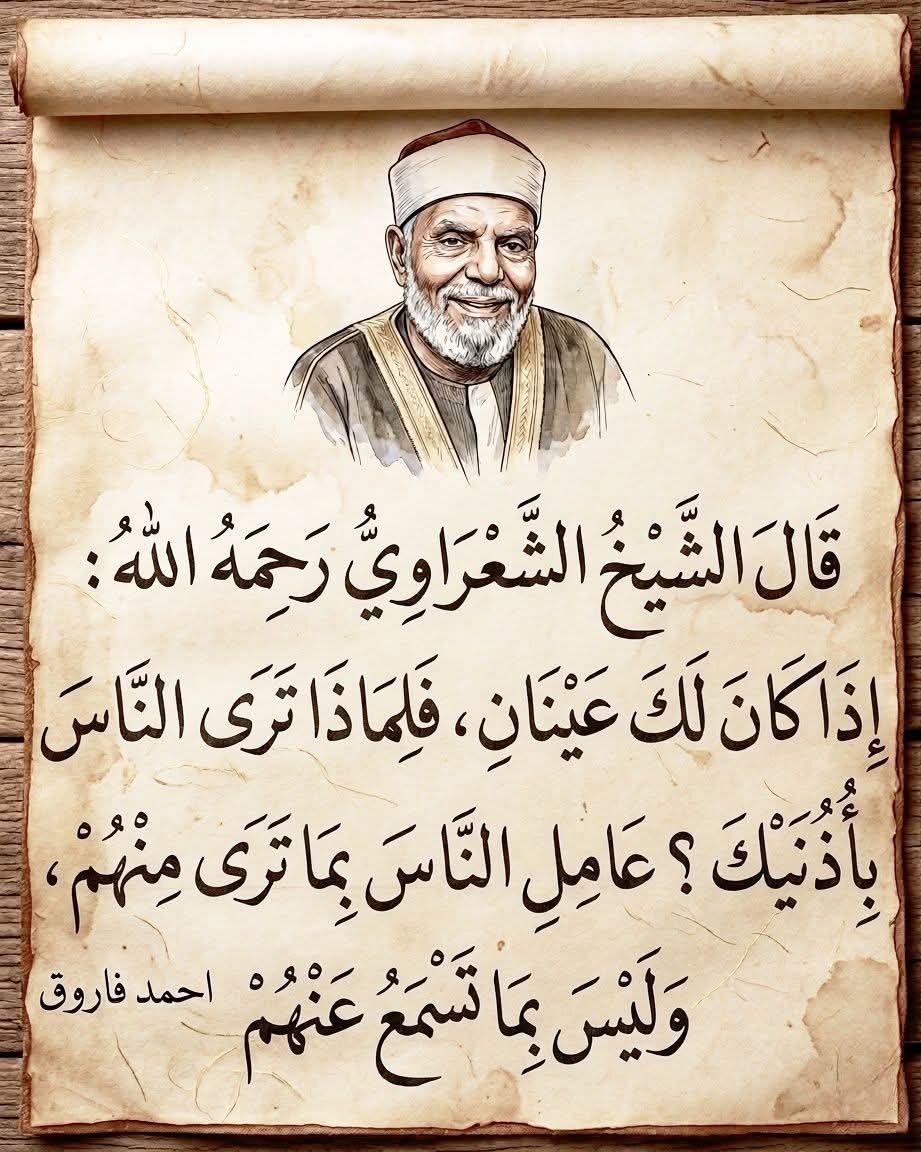 قَالَ الشَّيْخُ الشَّعْرَاوِيُّ رَحِمَهُ اللهُ :
إِذَا كَانَ لَكَ عَيْنَانِ، فَلِمَاذَا تَرَى النَّاسَ
بِأُذُنَيْكَ ؟ عَامِلِ النَّاسَ بِمَا تَرَى مِنْهُمْ،
وَلَيْسَ بِمَا تَسْمَعُ عَنْهُمْ
احمد فاروق